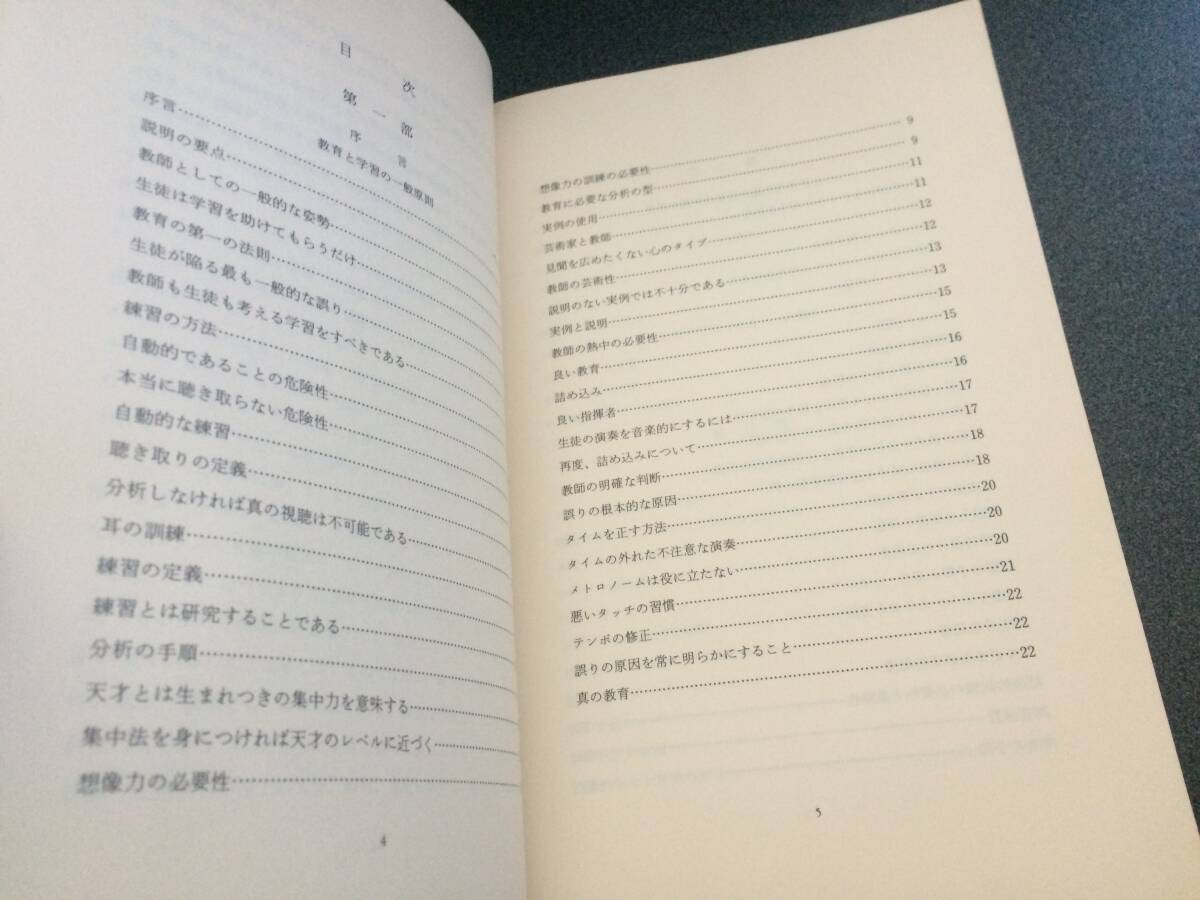 目次
第一部
序言
教育と学習の一般原則
序言……………
説明の要点……………
教師としての一般的な姿勢……………
生徒は学習を助けてもらうだけ……………
教育の第一の法則……………
生徒が陥る最も一般的な誤り……………
教師も生徒も考える学習をすべきである……………
練習の方法……………
自動的であることの危険性……………
本当に聴き取らない危険性……………
自動的な練習……………
聴き取りの定義……………
分析しなければ真の視聴は不可能である……………
耳の訓練……………
練習の定義……………
練習とは研究することである……………
分析の手順……………
天才とは生まれつきの集中力を意味する……………
集中法を身につければ天才のレベルに近づく……………
想像力の必要性……………
4
想像力の訓練の必要性……………9
教育に必要な分析の型……………9
実例の使用……………11
芸術家と教師……………11
見聞を広めたくない心のタイプ……………12
教師の芸術性……………12
説明のない実例では不十分である……………13
実例と説明……………13
教師の熱中の必要性……………15
良い教育……………15
詰め込み……………16
良い指揮者……………16
生徒の演奏を音楽的にするには……………17
再度、詰め込みについて……………17
教師の明確な判断……………18
誤りの根本的な原因……………18
タイムを正す方法……………20
タイムの外れた不注意な演奏……………20
メトロノームは役に立たない……………20
悪いタッチの習慣……………21
テンポの修正……………22
誤りの原因を常に明らかにすること……………22
真の教育……………22
5